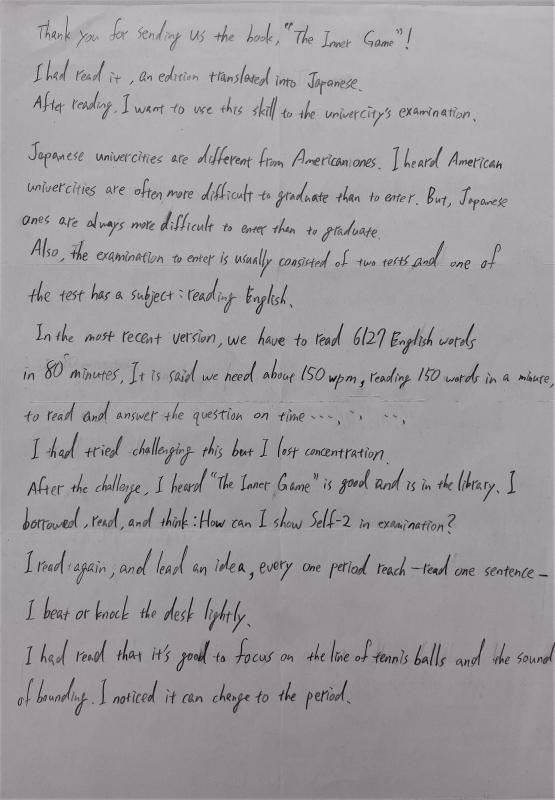 Thank you for sending us the book, "The Inner Game"!
I had read it, an edition translated into Japanese.
After reading, I want to use this skill to the univercity's examination.
Japanese univercities are different from American ones. I heard American
univercities are often more difficult to graduate than to enter. But, Japanese
ones are always more difficult to enter than to graduate.
Also, the examination to enter is usually consisted of two tests and one of
the test has a subject : reading English.
In the most recent version, we have to read 6127 English words
in 80 minutes. It is said we need about 150 wpm, reading 150 words in a minute,
to read and answer the question on time ...
I had tried challenging this but I lost concentration.
After the challenge, I heard "The Inner Game" is good and is in the library. I
borrowed, read, and think : How can I show Self-2 in examination?
I read again, and lead an idea, every one period reach – read one sentence –
I beat or knock the desk lightly.
I had read that it's good to focus on the line of tennis balls and the sound
of bounding. I noticed it can change to the period.